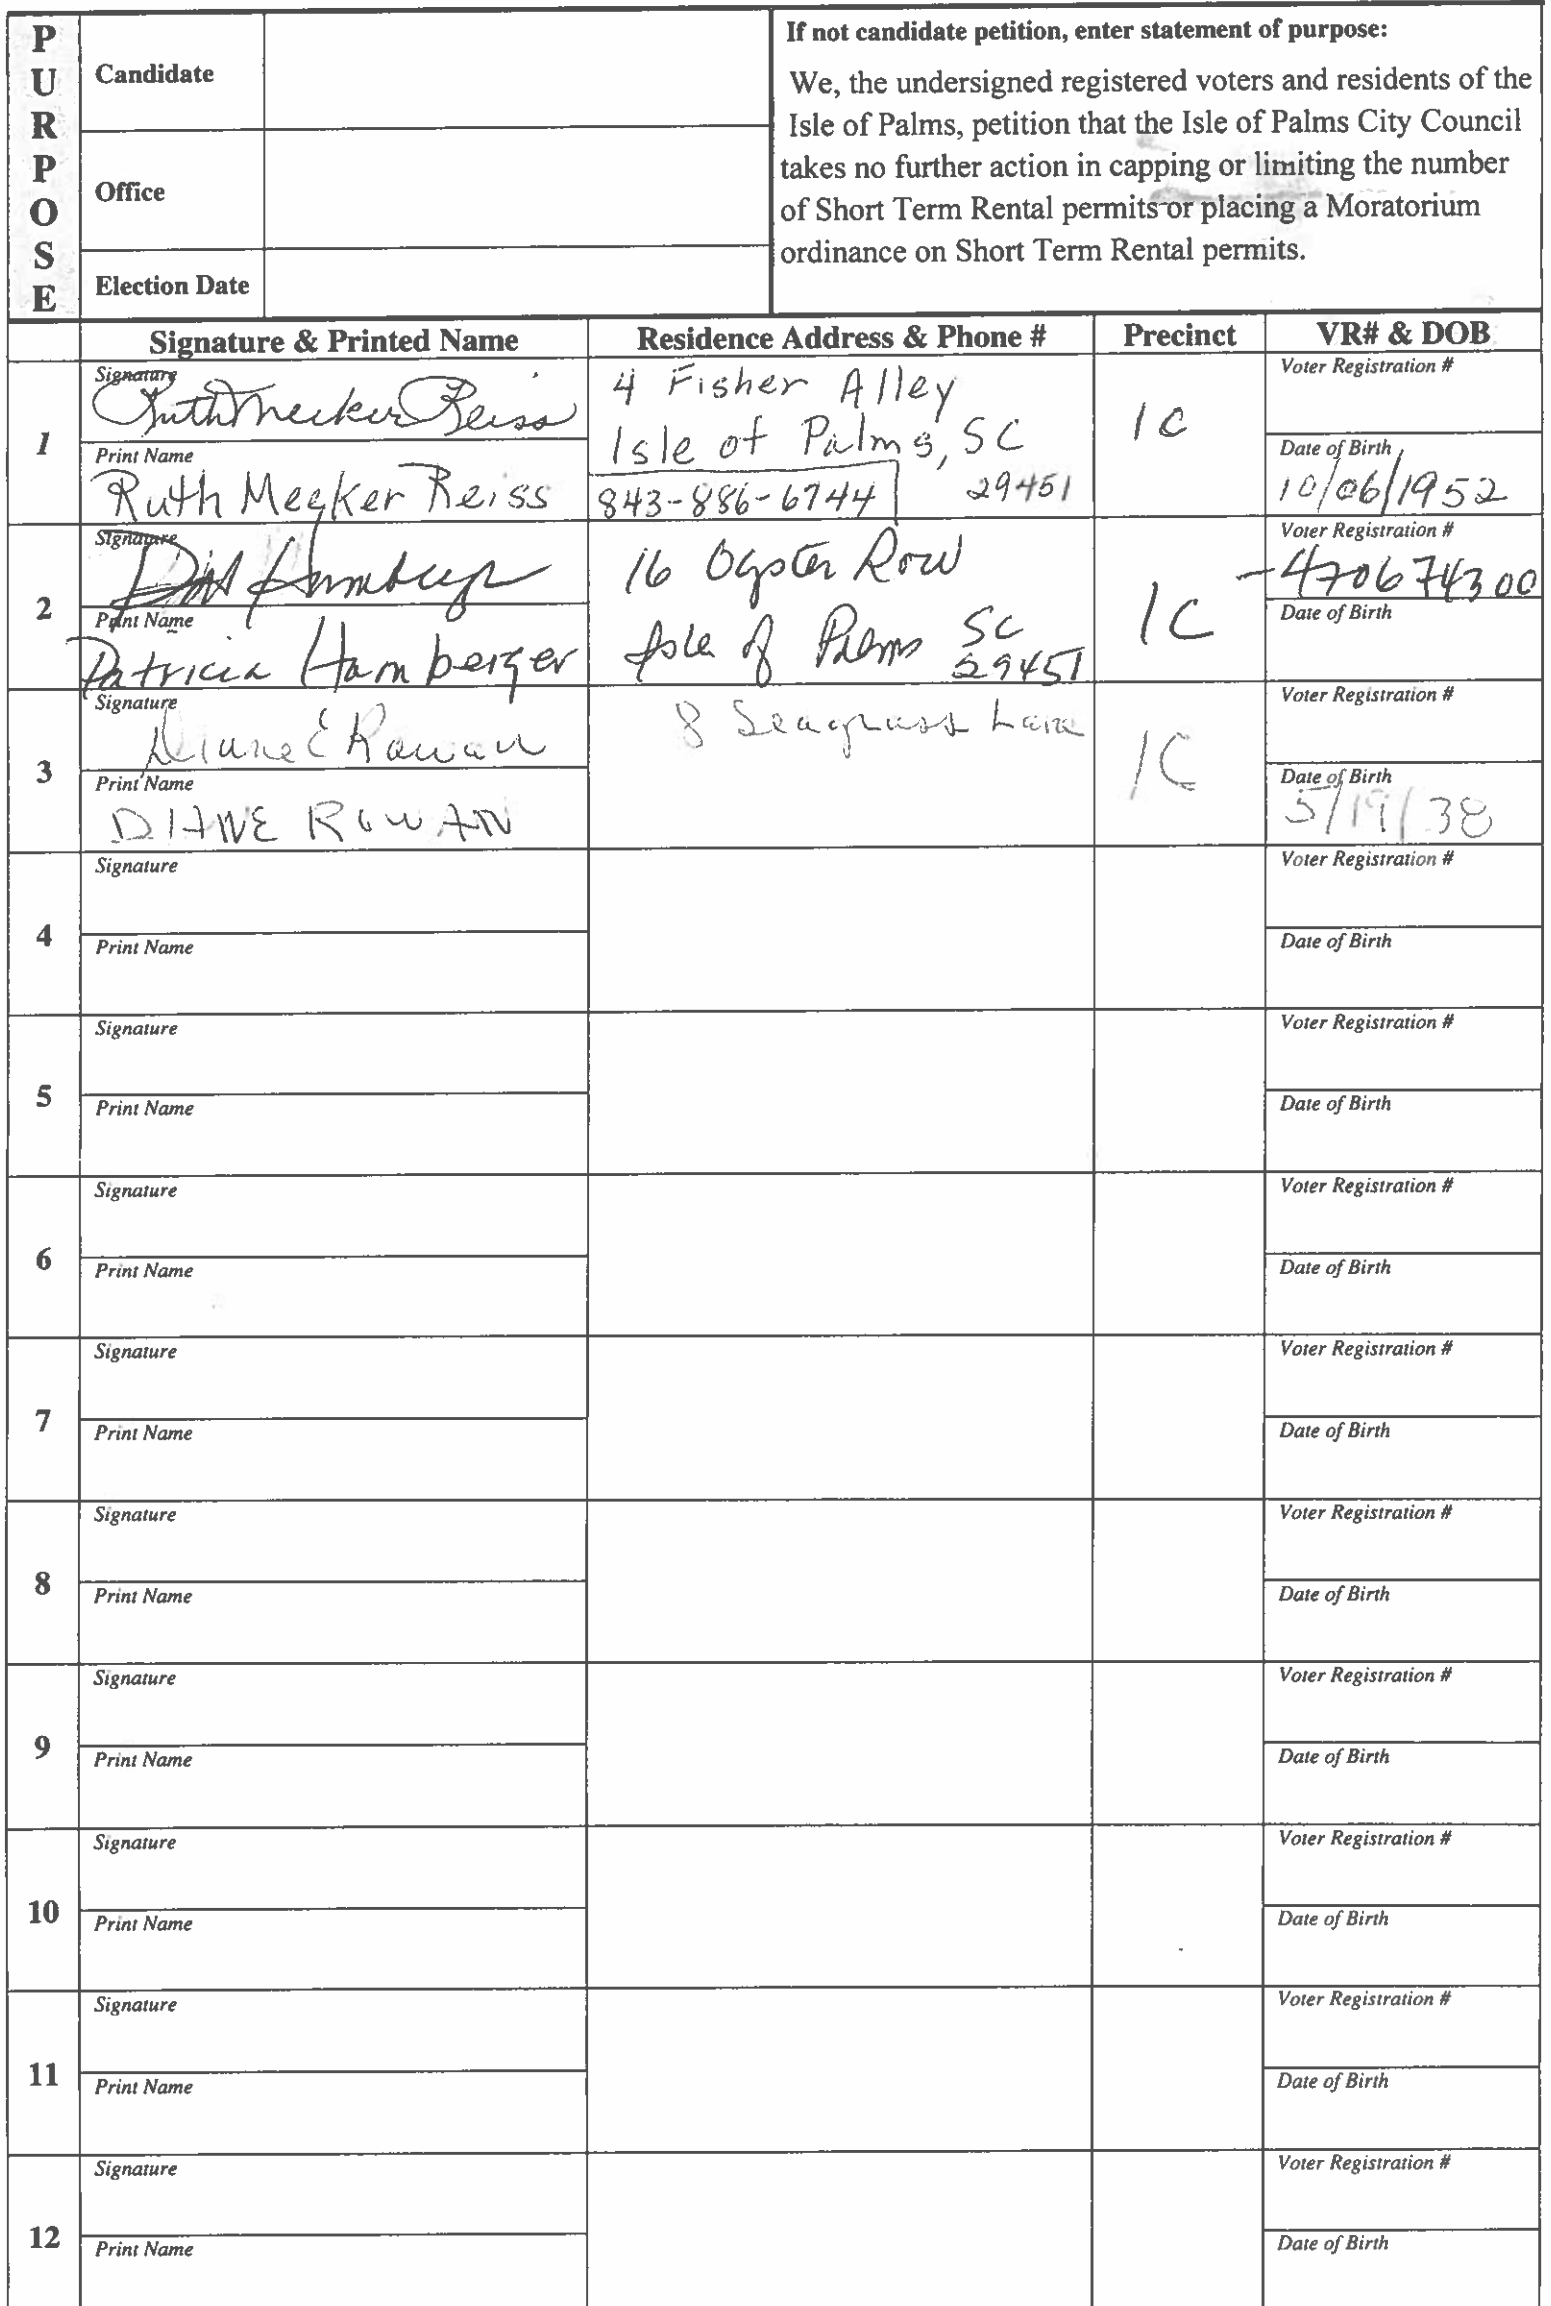 PURPOSE
Candidate
Office
Election Date
If not candidate petition, enter statement of purpose:
We, the undersigned registered voters and residents of the
Isle of Palms, petition that the Isle of Palms City Council
takes no further action in capping or limiting the number
of Short Term Rental permits or placing a Moratorium
ordinance on Short Term Rental permits.
Signature & Printed Name Residence Address & Phone # Precinct VR# & DOB
1
Signature
Ruth Meeker Reiss
Print Name
Ruth Meeker Reiss
4 Fisher Alley
Isle of Palms, SC
843-886-6744 29451
1C
Voter Registration #
Date of Birth
10/06/1952
2
Signature
Pat Hamberger
Print Name
Patricia Hamberger
16 Oyster Row
Isle of Palms SC
29451
1C
Voter Registration #
470674300
Date of Birth
3
Signature
Diane E Rowan
Print Name
DIANE ROWAN
8 Seagrass Lane
1C
Voter Registration #
Date of Birth
5/19/38
4
Signature
Print Name
Voter Registration #
Date of Birth
5
Signature
Print Name
Voter Registration #
Date of Birth
6
Signature
Print Name
Voter Registration #
Date of Birth
7
Signature
Print Name
Voter Registration #
Date of Birth
8
Signature
Print Name
Voter Registration #
Date of Birth
9
Signature
Print Name
Voter Registration #
Date of Birth
10
Signature
Print Name
Voter Registration #
Date of Birth
11
Signature
Print Name
Voter Registration #
Date of Birth
12
Signature
Print Name
Voter Registration #
Date of Birth